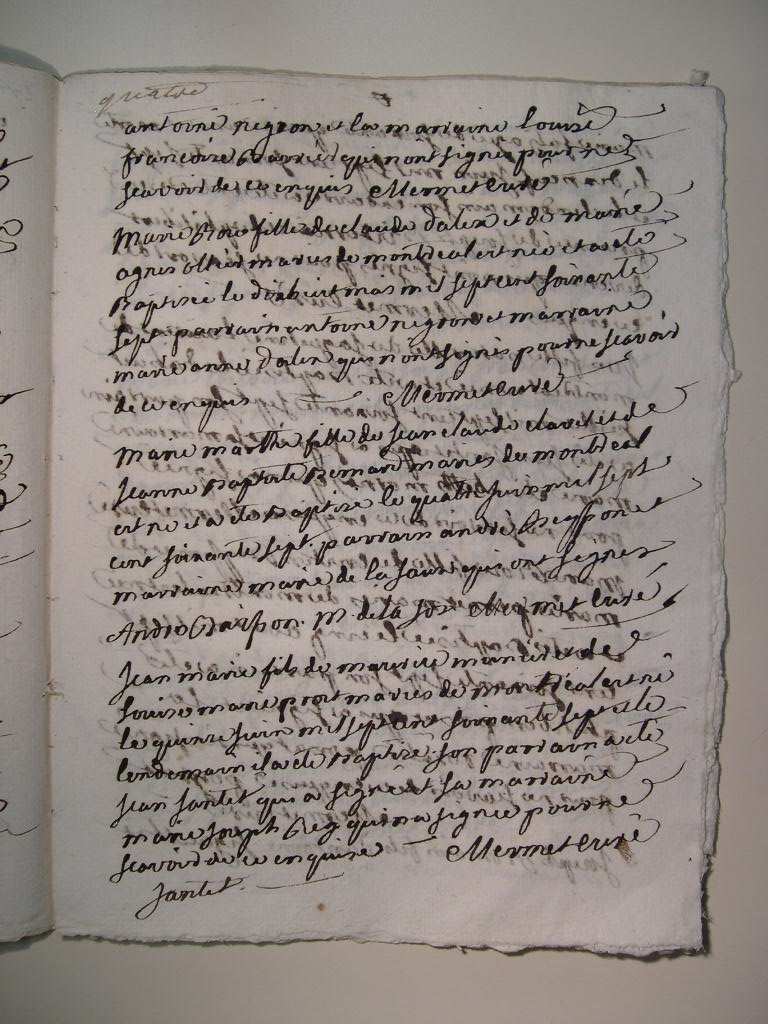 quatre
antoine negron et la marraine louise
francoise qui nont signes pour ne
scavoir de ce enquis Mermet curé
Marie fille de claude dalex et de marie
agnes ollier maries de montreal est née et a eté
baptisée le dixhuit mai mil sept cent soixante
sept. parrain antoine negron et marraine
marie anne dalex qui nont signés pour ne scavoir
de ce enquis Mermet curé
Marie marthe fille de jean claude clavel et de
jeanne baptiste maries de montreal
est né et a été baptisée le quatre juin mil sept
cent soixante sept. parrain andré et
marraine marie de la qui ont signes
André m. de la Mermet curé
Jean marie fils de maurice et de
louise marie prost maries de montreal est né
le quinze juin mil sept cent soixante sept et le
lendemain il a été baptisé son parrain a été
jean jantet qui a signé et sa marraine
marie joseph qui na signée pour ne
scavoir de ce enquise Mermet curé
jantet.